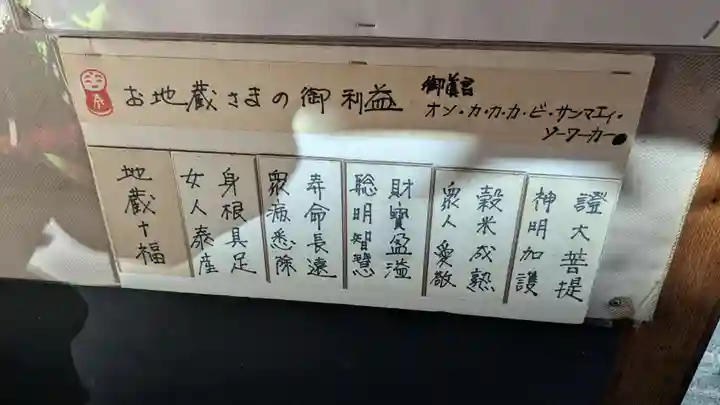 お地蔵さまの御利益
御真言
オン・カ・カ・カ・ビ・サンマエイ・
ソーワーカー
地蔵十福
女人泰産
身根具足
衆病悉除
寿命長遠
聡明智慧
財寶盈溢
衆人愛敬
穀米成熟
神明加護
證大菩提